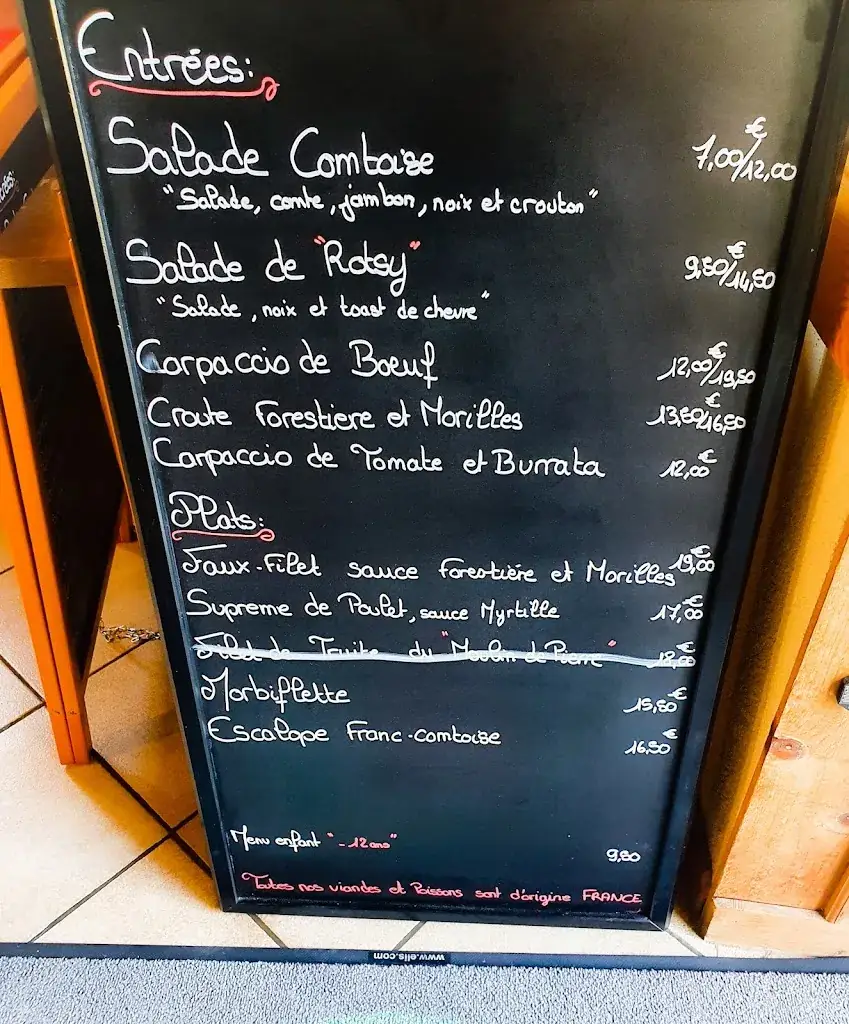 Entrées:
Salade Comtoise 7,00/12,00 €
"Salade, comte, jambon, noix et crouton"
Salade de "Rotsy" 9,50/14,50 €
"Salade, noix et toast de chevre"
Carpaccio de Boeuf 12,00/19,50 €
Croute Forestiere et Morilles 13,50/16,50 €
Carpaccio de Tomate et Burrata 12,00 €
Plats:
Faux-Filet sauce Forestière et Morilles 19,00 €
Supreme de Poulet, sauce Myrtille 17,00 €
Filet de Truite du "Moulin de Pierre" 18,00 €
Morbiflette 15,50 €
Escalope Franc-comtoise 16,50 €
Menu enfant "-12 ans" 9,50
Toutes nos viandes et Poissons sont d'origine FRANCE
www.elis.com